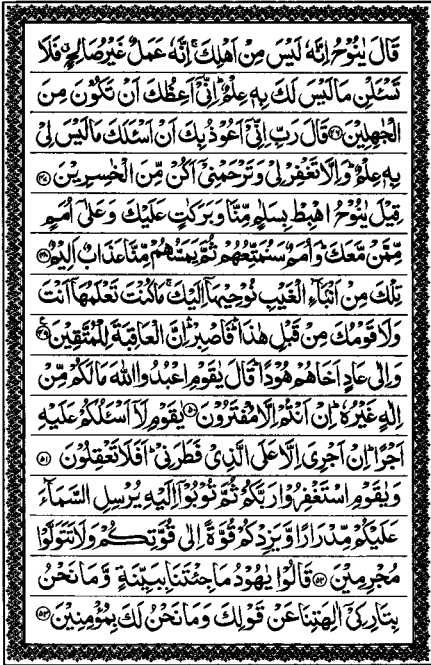 قَالَ يٰنُوْحُ اِنَّهٗ لَيْسَ مِنْ اَهْلِكَ ۚ اِنَّهٗ عَمَلٌ غَيْرُ صَالِحٍ ۖ فَلَا
تَسْـَٔلْنِ مَا لَيْسَ لَكَ بِهٖ عِلْمٌ ؕ اِنِّىْۤ اَعِظُكَ اَنْ تَكُوْنَ مِنَ
الْجٰهِلِيْنَ ﴿۴۶﴾ قَالَ رَبِّ اِنِّىْۤ اَعُوْذُ بِكَ اَنْ اَسْـَٔلَكَ مَا لَيْسَ لِىْ
بِهٖ عِلْمٌ ؕ وَ اِلَّا تَغْفِرْ لِىْ وَ تَرْحَمْنِىْۤ اَكُنْ مِّنَ الْخٰسِرِيْنَ ﴿۴۷﴾
قِيْلَ يٰنُوْحُ اهْبِطْ بِسَلٰمٍ مِّنَّا وَ بَرَكٰتٍ عَلَيْكَ وَ عَلٰۤى اُمَمٍ
مِّمَّنْ مَّعَكَ ؕ وَ اُمَمٌ سَنُمَتِّعُهُمْ ثُمَّ يَمَسُّهُمْ مِّنَّا عَذَابٌ اَلِيْمٌ ﴿۴۸﴾
تِلْكَ مِنْ اَنْۢبَآءِ الْغَيْبِ نُوْحِيْهَاۤ اِلَيْكَ ۚ مَا كُنْتَ تَعْلَمُهَاۤ اَنْتَ
وَ لَا قَوْمُكَ مِنْ قَبْلِ هٰذَا ۛؕ فَاصْبِرْ ۛؕ اِنَّ الْعَاقِبَةَ لِلْمُتَّقِيْنَ ﴿۴۹﴾
وَ اِلٰى عَادٍ اَخَاهُمْ هُوْدًا ؕ قَالَ يٰقَوْمِ اعْبُدُوا اللّٰهَ مَا لَكُمْ مِّنْ
اِلٰهٍ غَيْرُهٗ ؕ اِنْ اَنْتُمْ اِلَّا مُفْتَرُوْنَ ﴿۵۰﴾ يٰقَوْمِ لَاۤ اَسْـَٔلُكُمْ عَلَيْهِ
اَجْرًا ؕ اِنْ اَجْرِىَ اِلَّا عَلَى الَّذِىْ فَطَرَنِىْ ؕ اَفَلَا تَعْقِلُوْنَ ﴿۵۱﴾
وَ يٰقَوْمِ اسْتَغْفِرُوْا رَبَّكُمْ ثُمَّ تُوْبُوْۤا اِلَيْهِ يُرْسِلِ السَّمَآءَ
عَلَيْكُمْ مِّدْرَارًا وَّ يَزِدْكُمْ قُوَّةً اِلٰى قُوَّتِكُمْ وَ لَا تَتَوَلَّوْا
مُجْرِمِيْنَ ﴿۵۲﴾ قَالُوْا يٰهُوْدُ مَا جِئْتَنَا بِبَيِّنَةٍ وَّ مَا نَحْنُ
بِتَارِكِىْۤ اٰلِهَتِنَا عَنْ قَوْلِكَ وَ مَا نَحْنُ لَكَ بِمُؤْمِنِيْنَ ﴿۵۳﴾